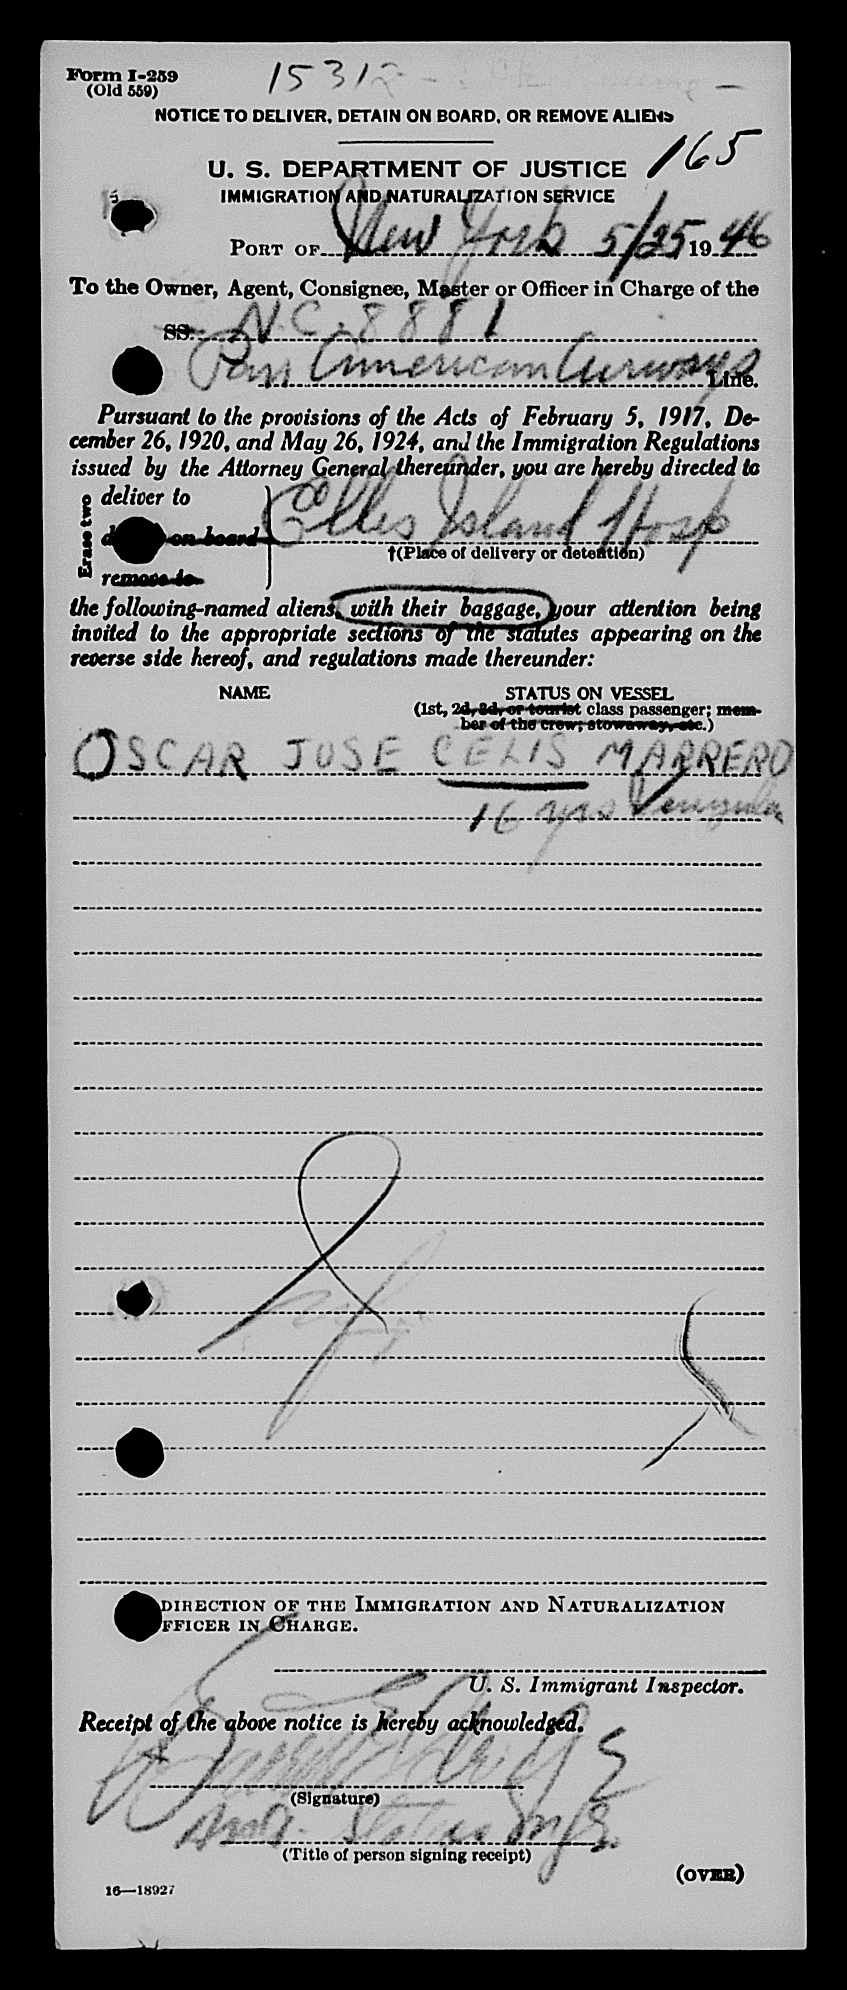 Form I-259
(Old 559)
1531
NOTICE TO DELIVER, DETAIN ON BOARD, OR REMOVE ALIENS
165
U. S. DEPARTMENT OF JUSTICE
IMMIGRATION AND NATURALIZATION SERVICE
PORT OF New York 5/25 19 46
To the Owner, Agent, Consignee, Master or Officer in Charge of the
SS. N.C. 8881
Pan American Airways Line.
Pursuant to the provisions of the Acts of February 5, 1917, De-
cember 26, 1920, and May 26, 1924, and the Immigration Regulations
issued by the Attorney General thereunder, you are hereby directed to
Erase two
deliver to
on board
remove to
Ellis Island Hosp
†(Place of delivery or detention)
the following-named aliens, with their baggage, your attention being
invited to the appropriate sections of the statutes appearing on the
reverse side hereof, and regulations made thereunder:
NAME STATUS ON VESSEL
(1st, 2d, 3d, or tourist class passenger; mem-
ber of the crew; stowaway, etc.)
OSCAR JOSE CELIS MARRERO
16 yrs
DIRECTION OF THE IMMIGRATION AND NATURALIZATION
FFICER IN CHARGE.
U. S. Immigrant Inspector.
Receipt of the above notice is hereby acknowledged.
(Signature)
(Title of person signing receipt)
(OVER)
16—18927